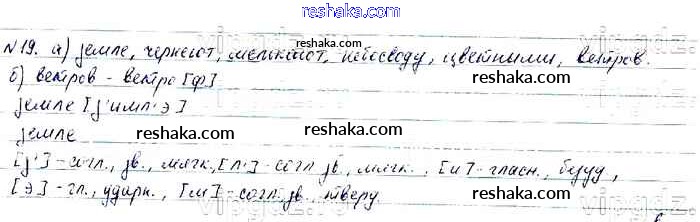 reshaka.com
№19. а) земле, чернеют, мелькают, небосводу, цветными, ветров.
б) ветров - ветро[ф]
земле [з'имл'э]
земле
[з']-согл., зв., мягк., [л']-согл зв., мягк., [и]-гласн., безуд,
[э]-гл., ударн., [м]-согл, зв., тверд.